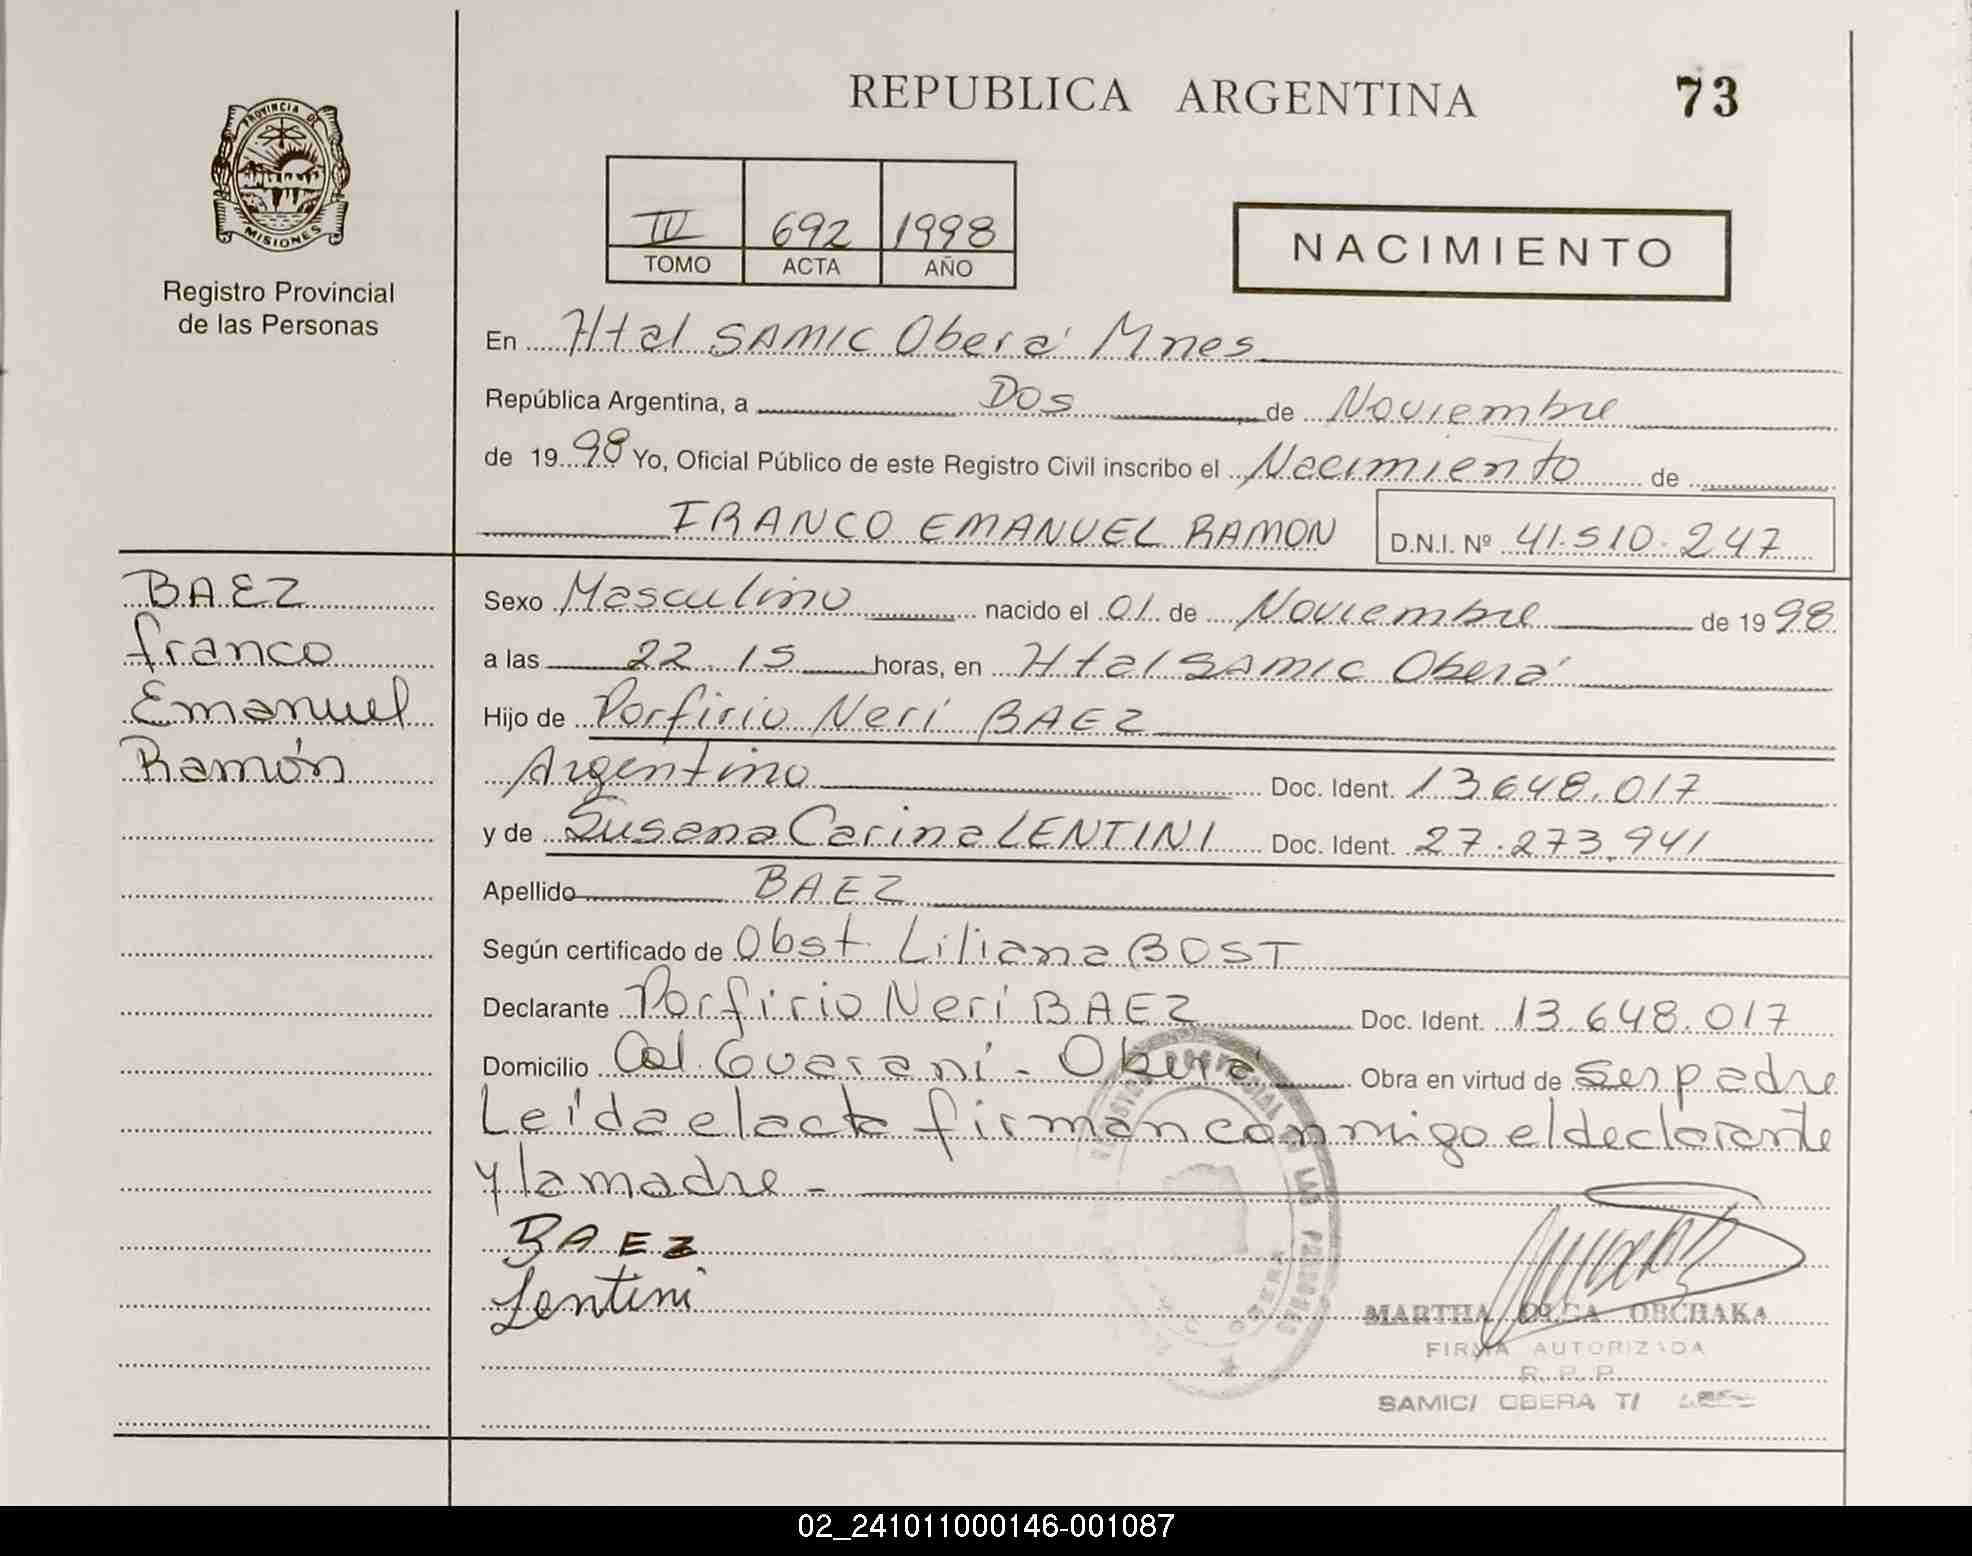 REPUBLICA ARGENTINA 73
PROVINCIA DE
MISIONES
Registro Provincial
de las Personas
IV 692 1998
TOMO ACTA AÑO
NACIMIENTO
En Htal SAMIC Oberá Mnes
República Argentina, a Dos de Noviembre
de 1998 Yo, Oficial Público de este Registro Civil inscribo el Nacimiento de
FRANCO EMANUEL RAMON D.N.I. Nº 41.510.247
BAEZ
franco
Emanuel
Ramón
Sexo Masculino nacido el 01 de Noviembre de 1998
a las 22.15 horas, en Htal SAMIC Oberá
Hijo de Porfirio Neri BAEZ
Argentino Doc. Ident. 13.648.017
y de Susana Carina LENTINI Doc. Ident. 27.273.941
Apellido BAEZ
Según certificado de Obst. Liliana BOST
Declarante Porfirio Nerí BAEZ Doc. Ident. 13.648.017
Domicilio Col. Guaraní - Oberá Obra en virtud de ser padre
Leída el acta firman conmigo el declarante
y la madre -
BAEZ
Lentini
MARTHA OLGA ORCHAKA
FIRMA AUTORIZADA
R. P. P.
SAMIC/ OBERA T/
02_241011000146-001087